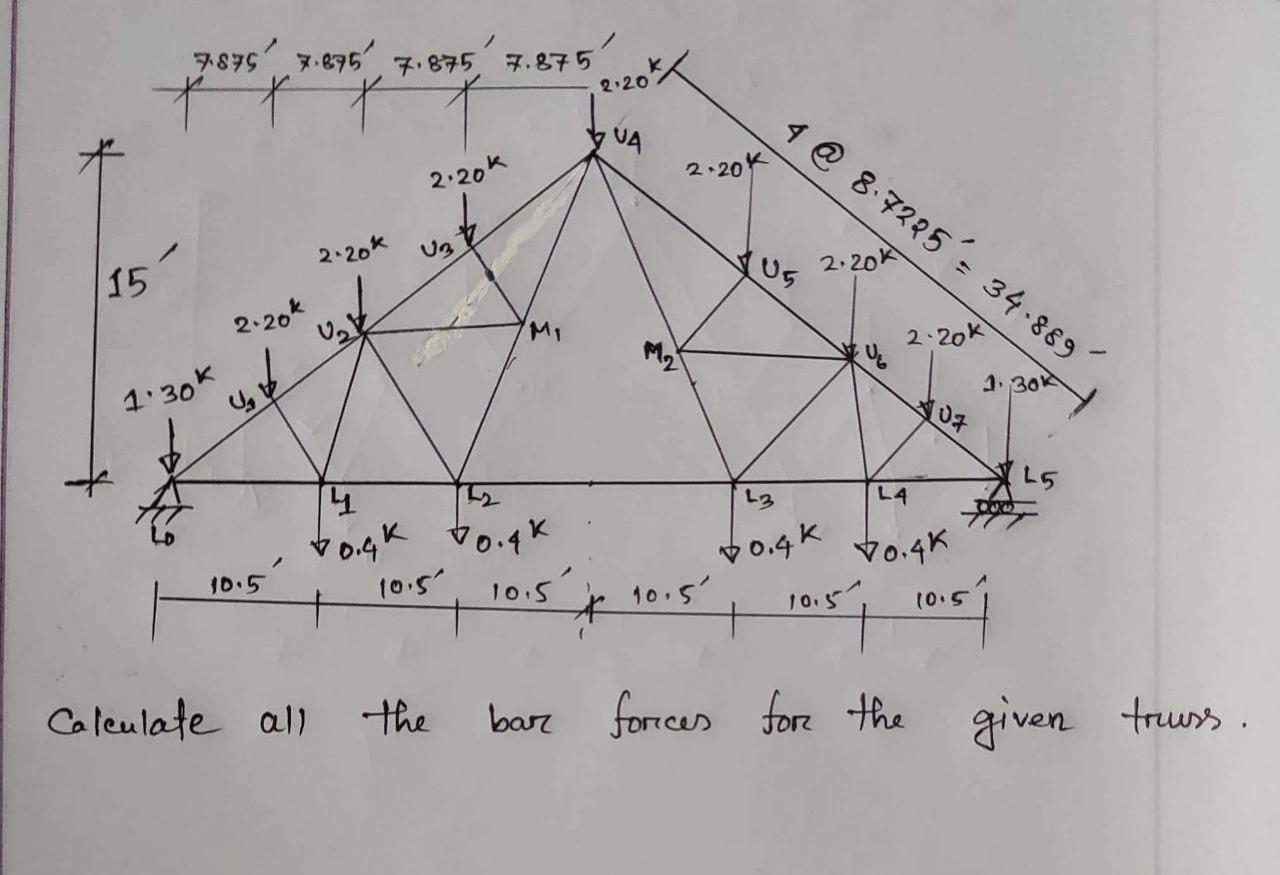 7.875′ 7.875′ 7.875′ 7.875′
2.20K
U4
4 @ 8.7225′ = 34.889
2.20K
2.20K
U3
2.20K
U5
2.20K
15′
2.20K
U2
M1
M2
U6
2.20K
1.30K
U1
1.30K
U7
L0
L1
L2
L3
L4
L5
0.4K
0.4K
0.4K
0.4K
10.5′ 10.5′ 10.5′ 10.5′ 10.5′ 10.5′
Calculate all the bar forces for the given truss.